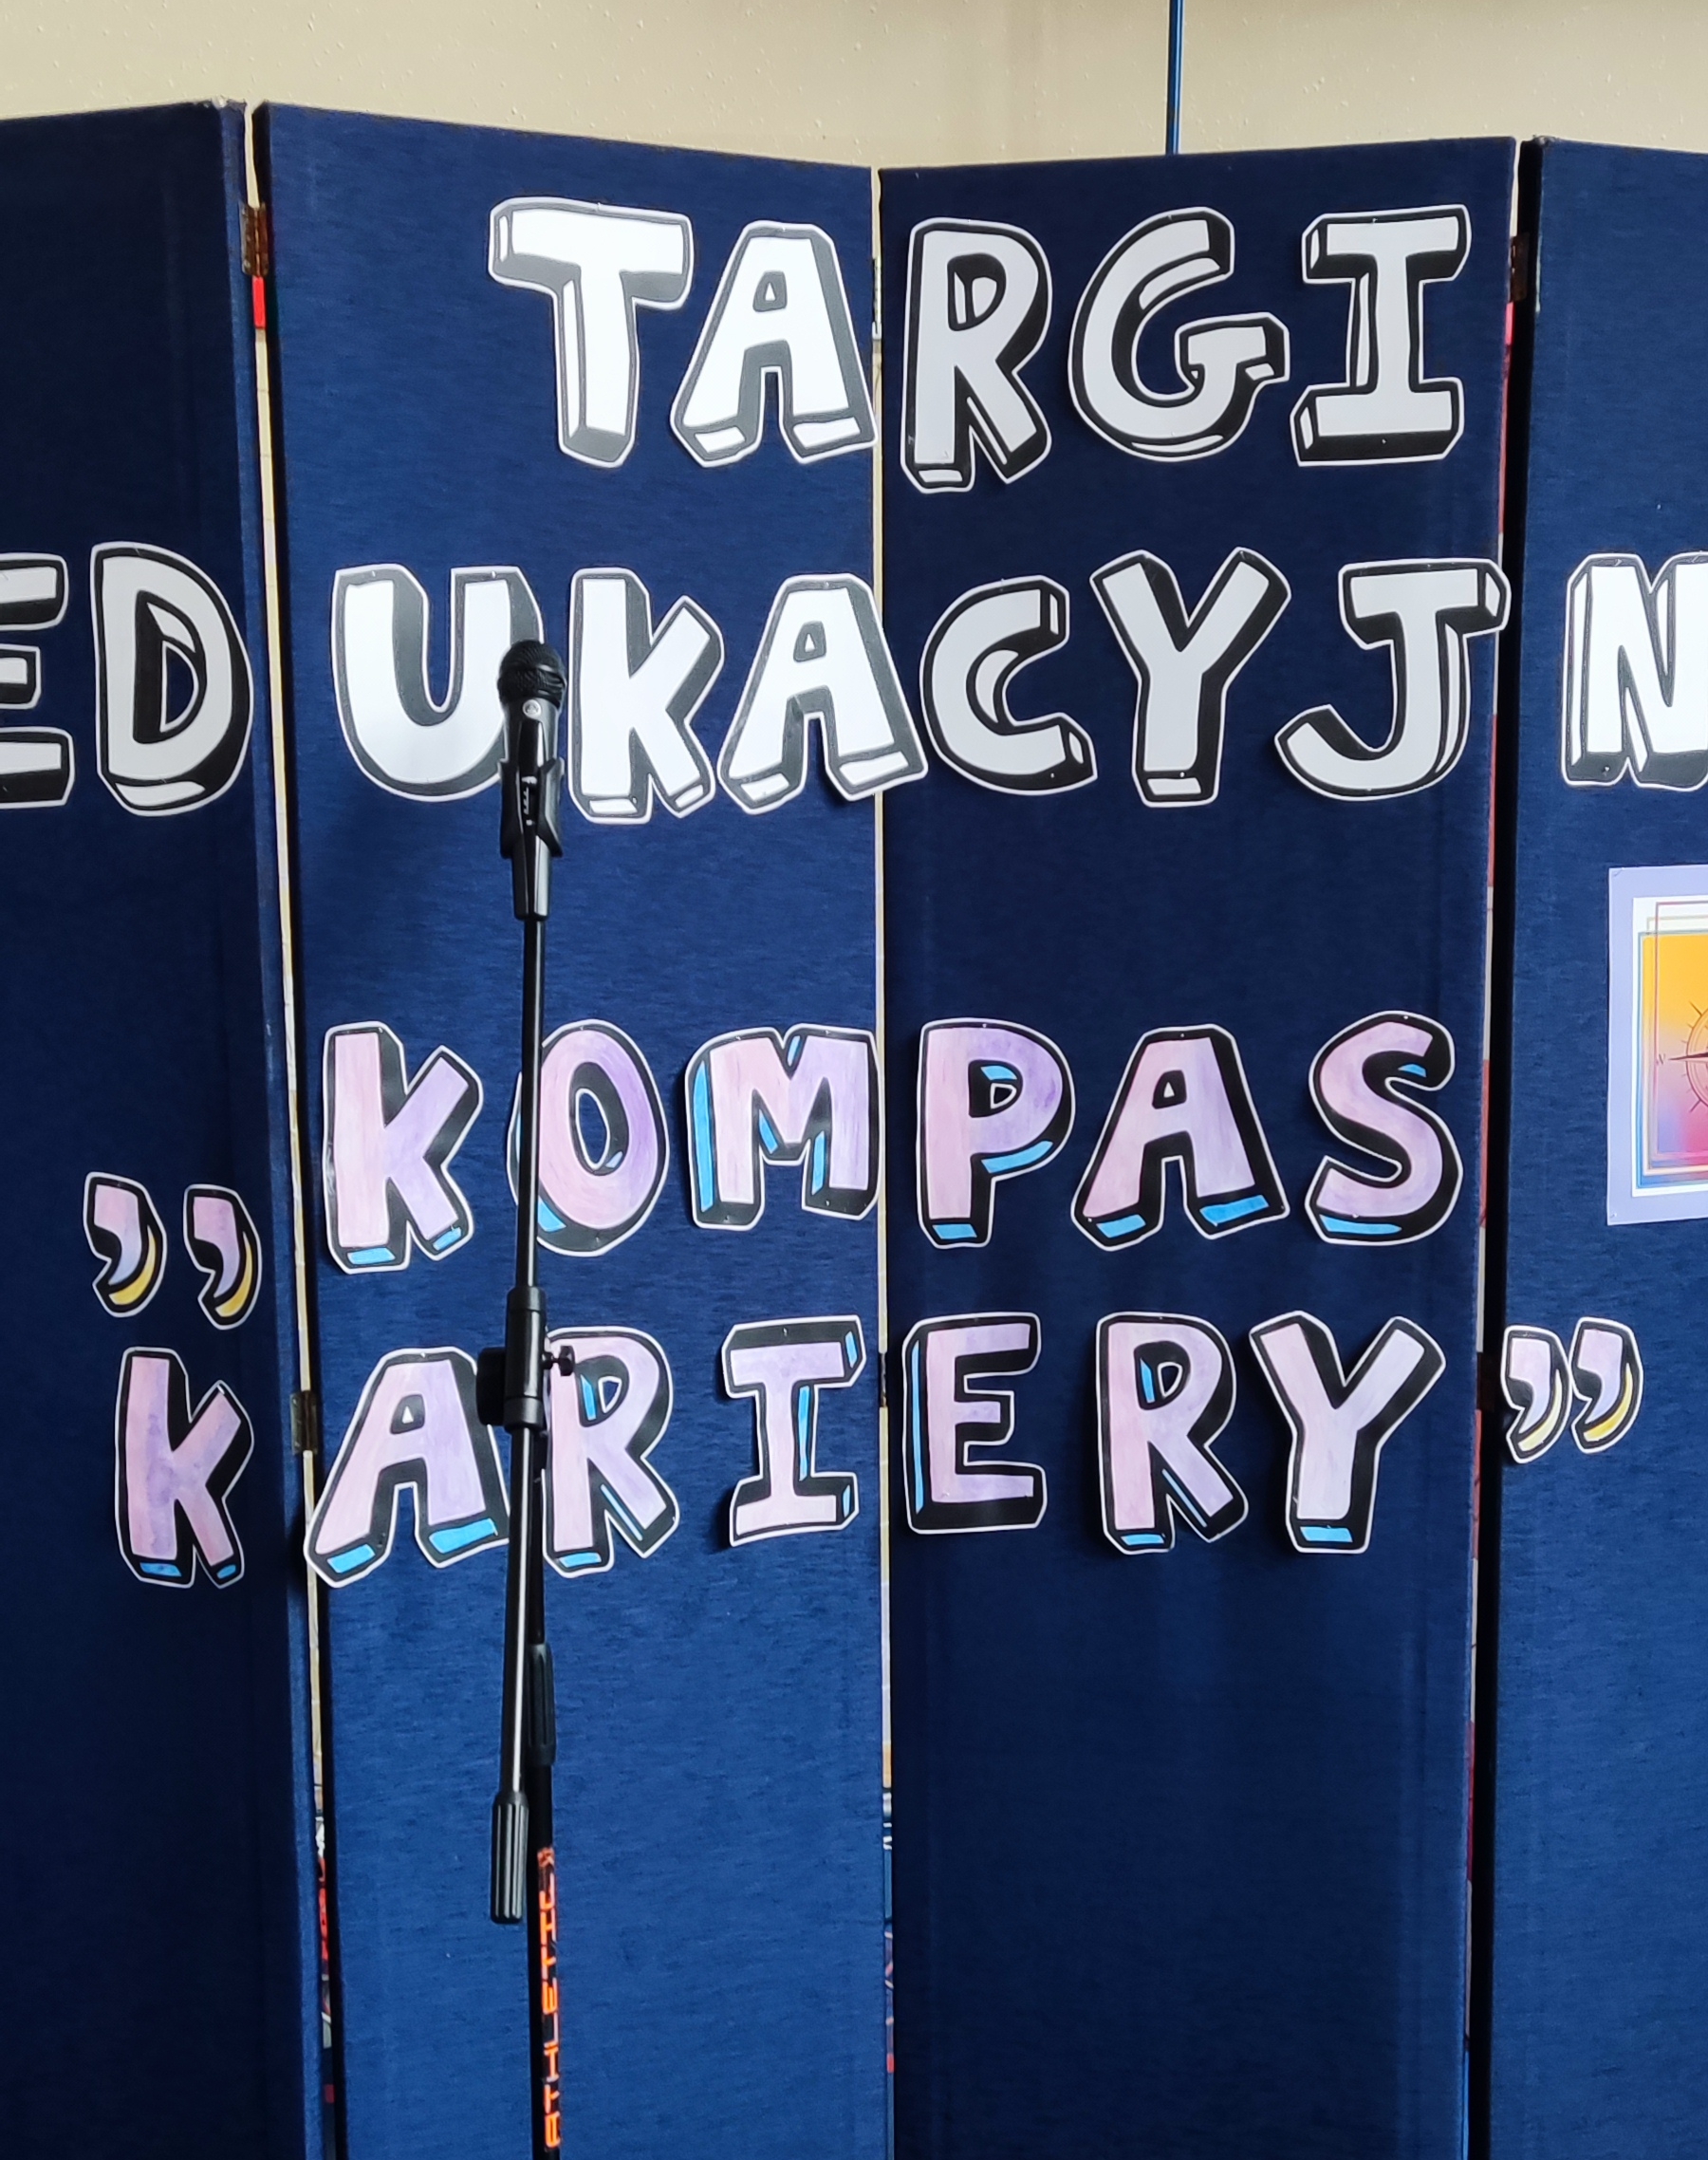 TARGI
EDUKACYJN
„KOMPAS
KARIERY”
ATHLETIC